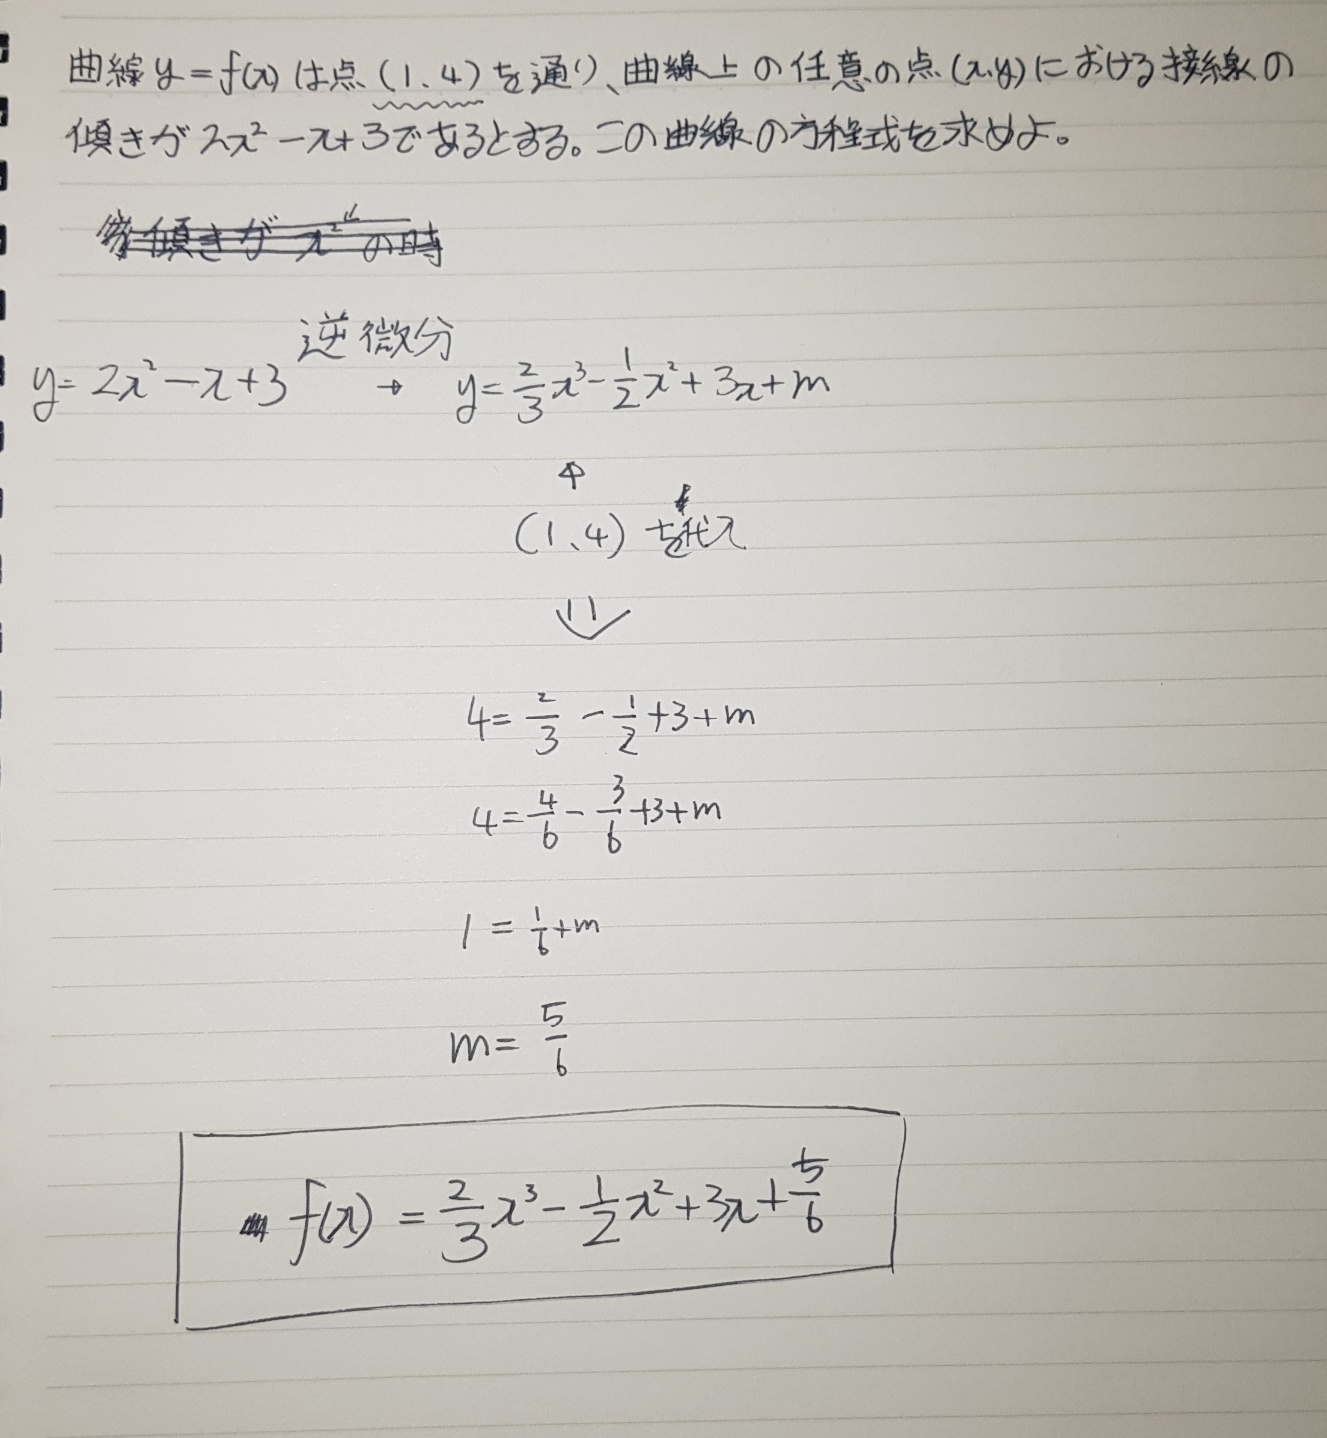 曲線y=f(x)は点(1、4)を通り、曲線上の任意の点(x,y)における接線の
傾きが2x²-x+3であるとする。この曲線の方程式を求めよ。
傾きが x² の時
逆微分
y=2x²-x+3 → y=2/3x³-1/2x²+3x+m
↑
(1、4)を代入
⇓
4=2/3-1/2+3+m
4=4/6-3/6+3+m
1=1/6+m
m=5/6
f(x)=2/3x³-1/2x²+3x+5/6